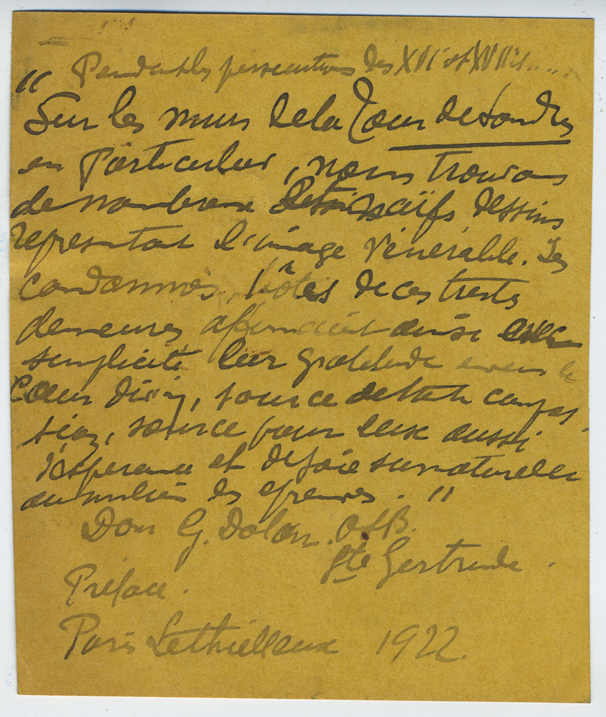 Pendant les persécutions des XVIe et XVIIe s.....
" Sur les murs de la Tour de Londres
en particulier, nous trouvons
de nombreux naïfs dessins
représentant l'image vénérable. Les
condamnés, hôtes de ces tristes
demeures affirmaient ainsi avec
simplicité leur gratitude envers le
Cœur divin, source de toute compas-
sion, source pour eux aussi
d'espérance et de joie surnaturelle
au milieu des épreuves. "
Dom G. Dolan. OSB.
Ste Gertrude.
Préface.
Paris Lethielleux 1922.